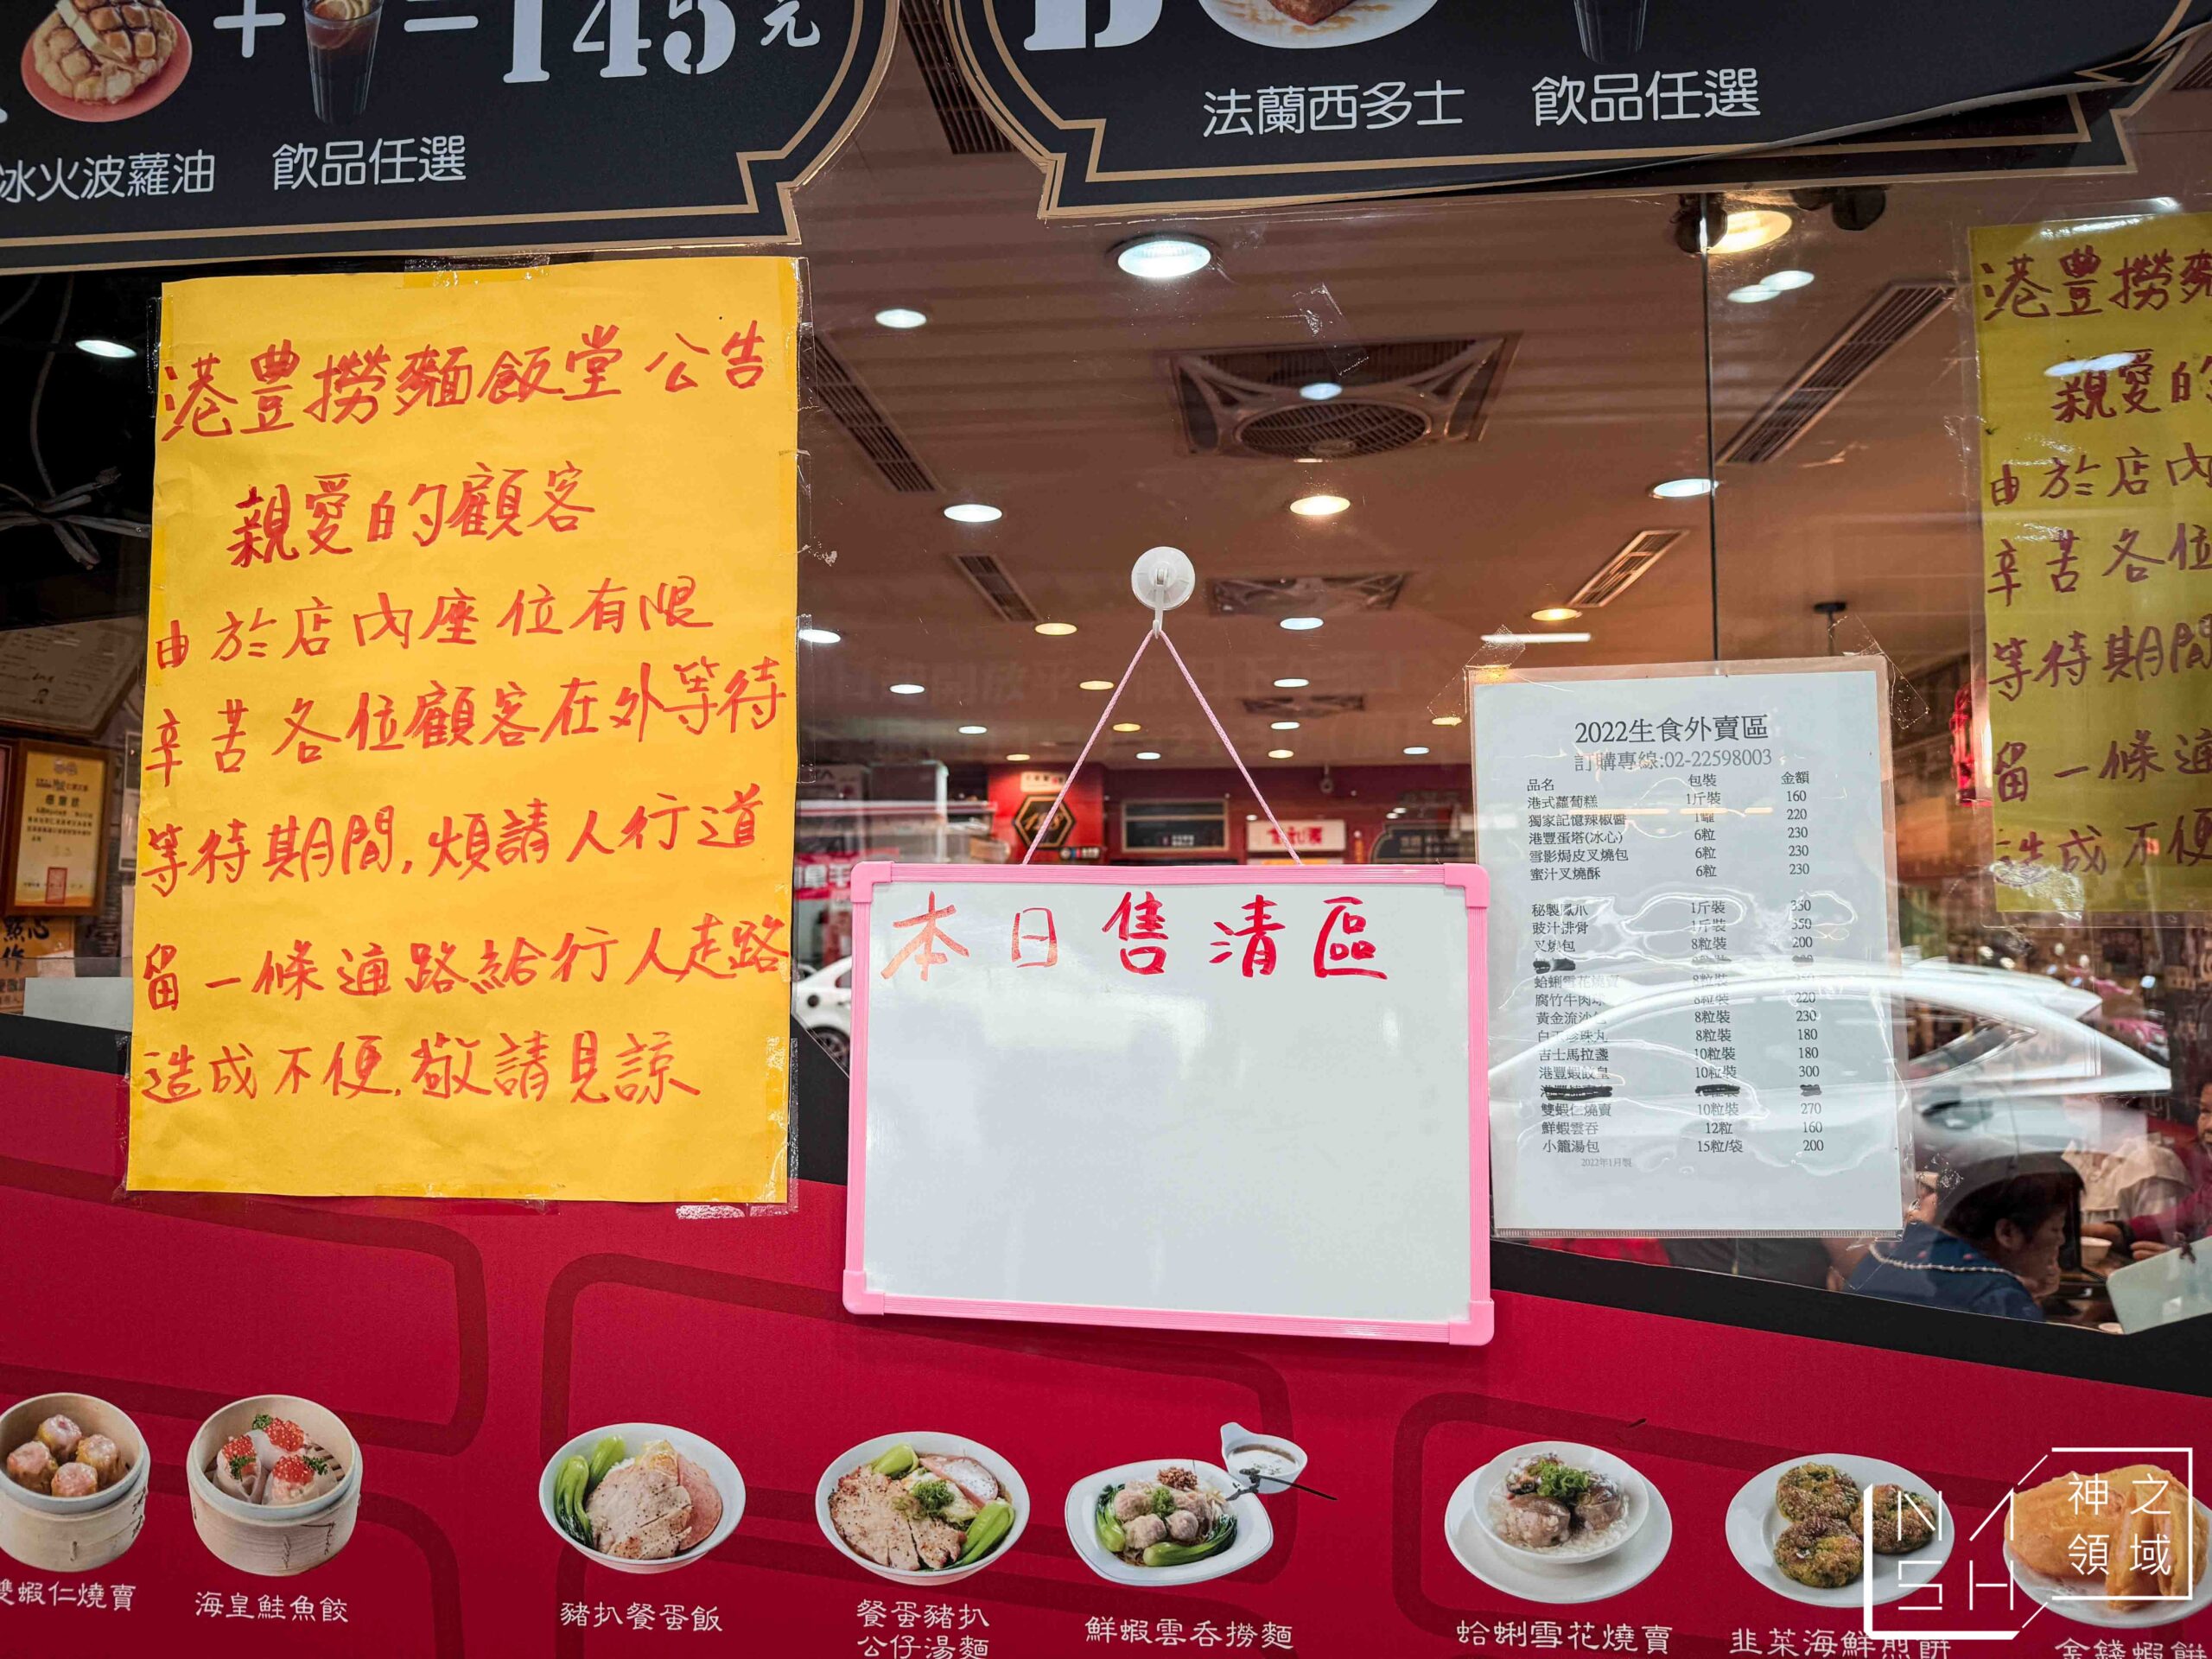 + = 145元
冰火波蘿油 飲品任選
法蘭西多士 飲品任選
港豊撈麵飯堂公告
親愛的顧客
由於店內座位有限
辛苦各位顧客在外等待
等待期間,煩請人行道
留一條通路給行人走路
造成不便,敬請見諒
本日售清區
2022生食外賣區
訂購專線:02-22598003
品名 包裝 金額
港式蘿蔔糕 1斤裝 160
獨家記憶辣椒醬 1罐 220
港豐蛋塔(冰心) 6粒 230
雪影焗皮叉燒包 6粒 230
蜜汁叉燒酥 6粒 230
秘製鳳爪 1斤裝 350
豉汁排骨 1斤裝 350
叉燒包 8粒裝 200
蛤蜊雪花燒賣 8粒裝
腐竹牛肉球 8粒裝 220
黃金流沙包 8粒裝 230
白玉珍珠丸 8粒裝 180
吉士馬拉盞 10粒裝 180
港豐蝦餃皇 10粒裝 300
雙蝦仁燒賣 10粒裝 270
鮮蝦雲吞 12粒 160
小籠湯包 15粒/袋 200
2022年1月製
港豊撈麵
親愛的
由於店內
辛苦各位
等待期間
留一條通
造成不便
雙蝦仁燒賣
海皇鮭魚餃
豬扒餐蛋飯
餐蛋豬扒
公仔湯麵
鮮蝦雲吞撈麵
蛤蜊雪花燒賣
韭菜海鮮煎餅
金錢蝦餅
NASH
神之
領域